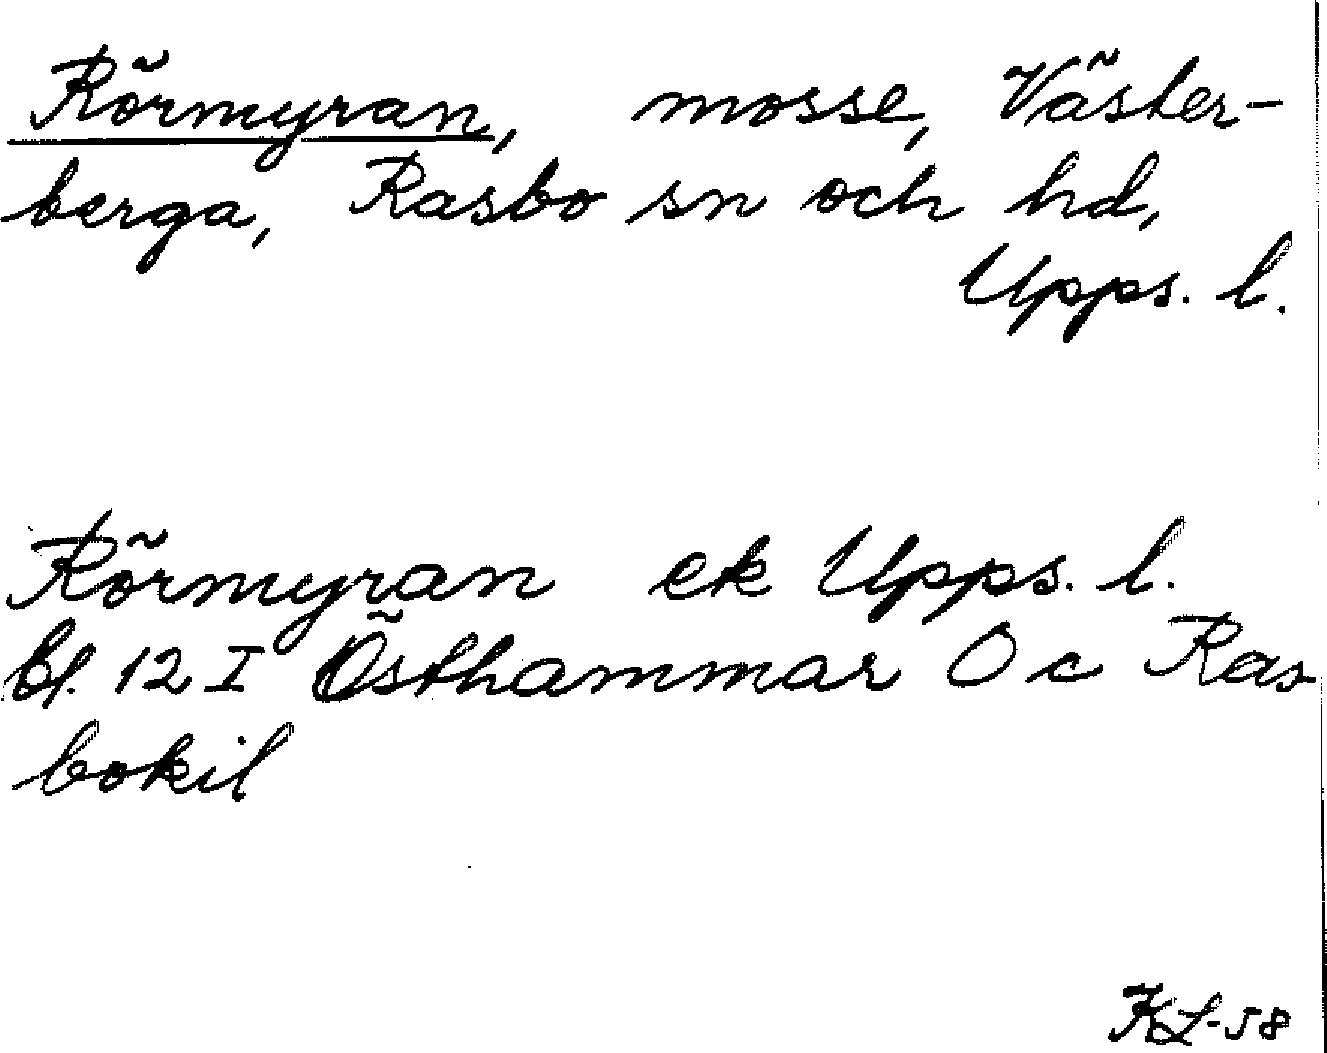 Rörmyran, mosse, Väster-
berga, Rasbo sn och hd,
Upps. l.
Rörmyran ek Upps. l.
bl. 12 I Östhammar O c Ras-
bokil
KL-58